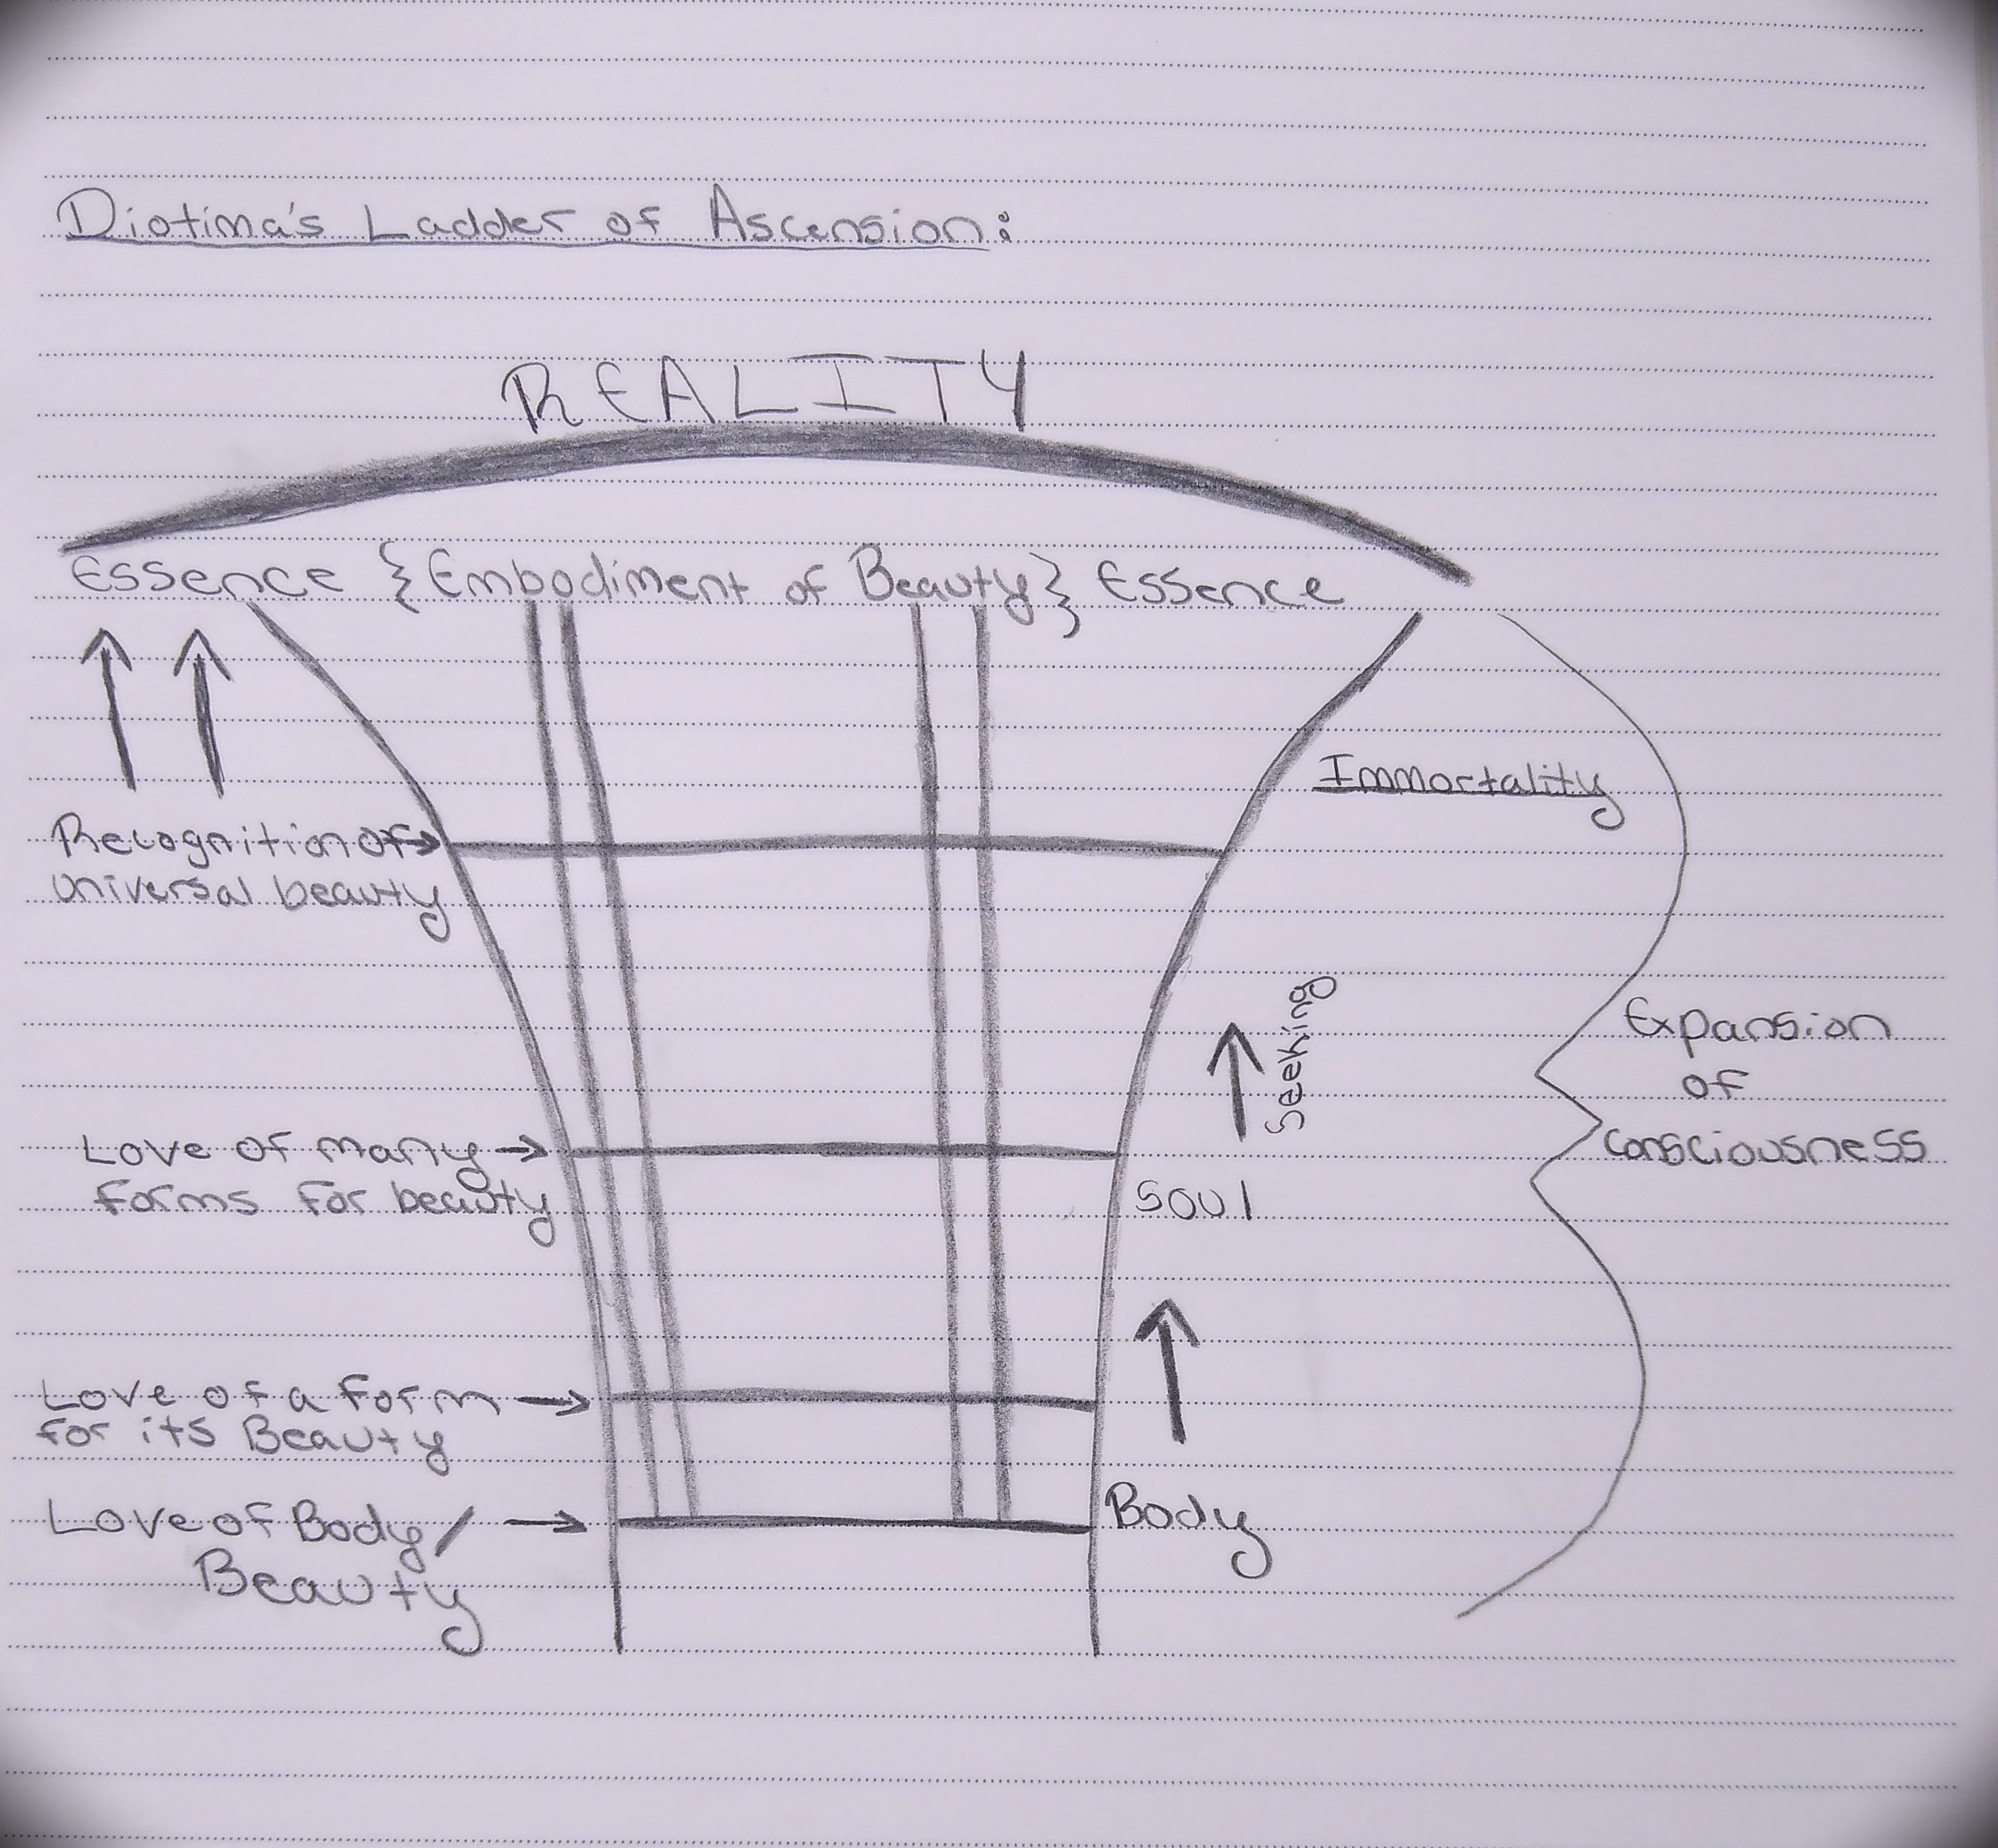 Diotima's Ladder of Ascension:
REALITY
Essence {Embodiment of Beauty} Essence
Immortality
Recognition of
universal beauty
Seeking
Expansion
of
consciousness
Love of many
forms for beauty
soul
Love of a form
for its Beauty
Love of Body/
Beauty
Body